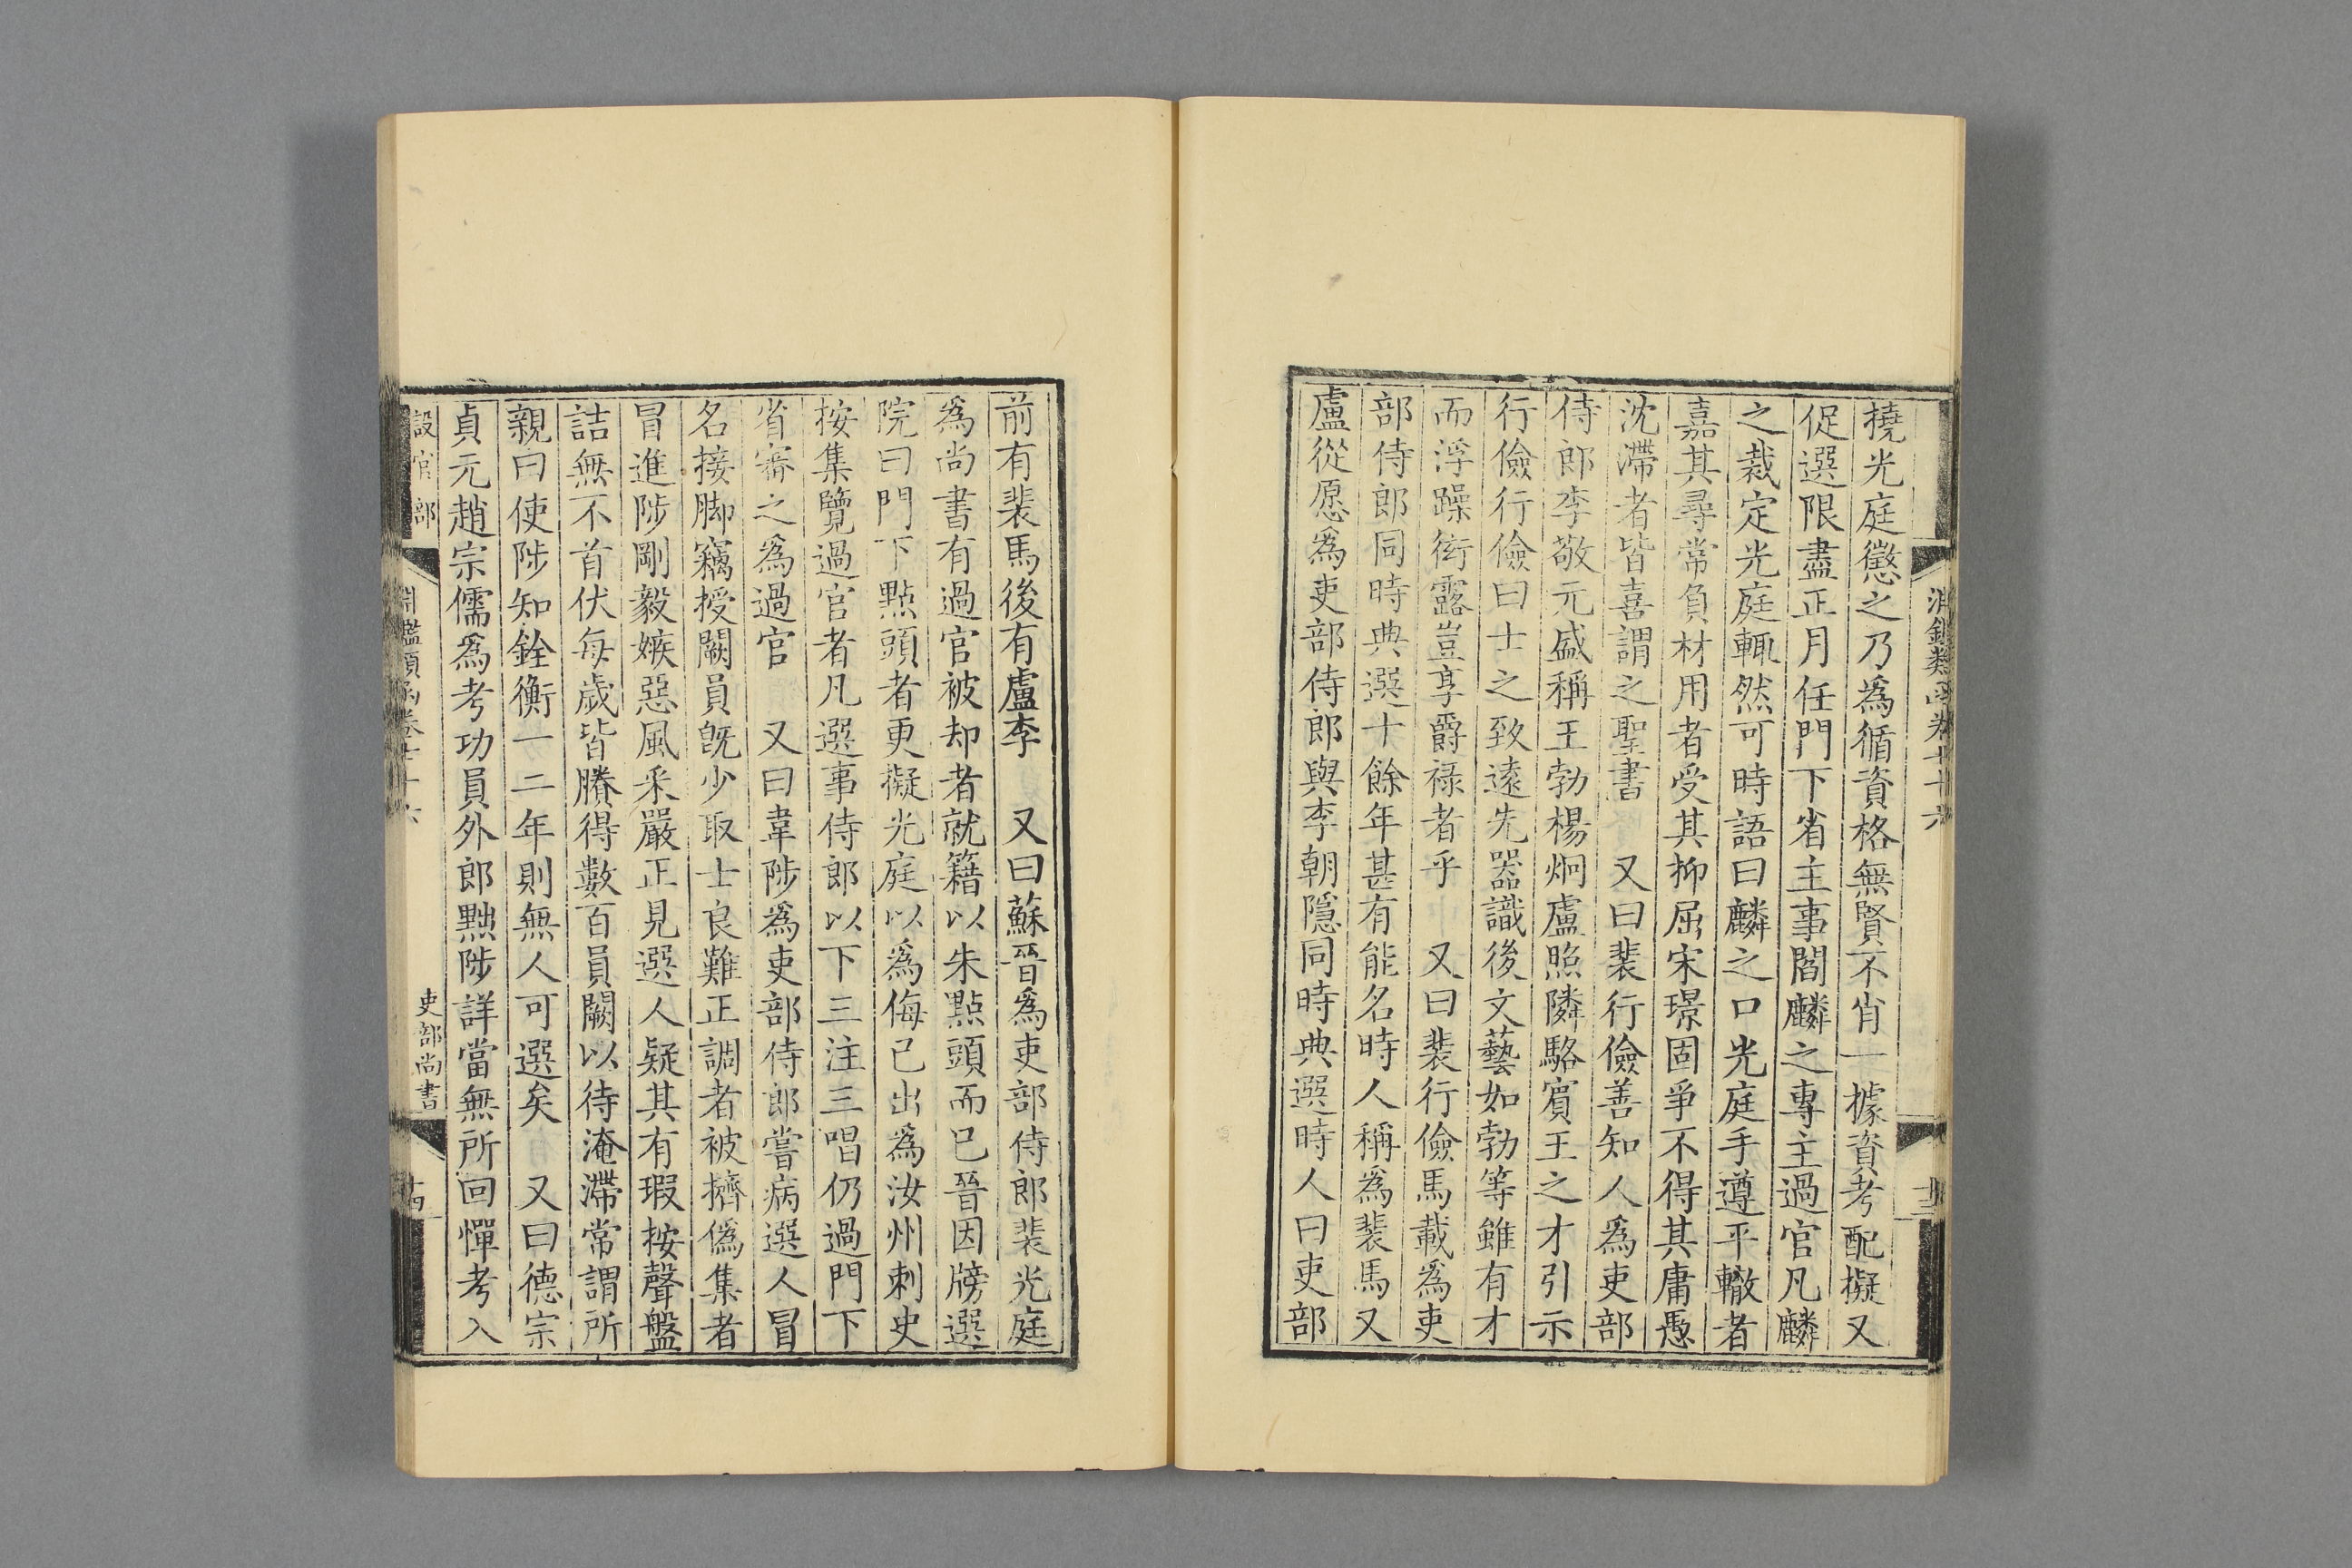 淵鑑類函卷七十六
十三
撓光庭懲之乃爲循資格無賢不肖一據資考配擬又
促選限盡正月任門下省主事閻麟之專主過官凡麟
之裁定光庭輒然可時語曰麟之口光庭手遵平轍者
嘉其尋常負材用者受其抑屈宋璟固爭不得其庸愚
沈滯者皆喜謂之聖書 又曰裴行儉善知人爲吏部
侍郎李敬元盛稱王勃楊炯盧照隣駱賓王之才引示
行儉行儉曰士之致遠先器識後文藝如勃等雖有才
而浮躁衒露豈享爵祿者乎 又曰裴行儉馬載爲吏
部侍郎同時典選十餘年甚有能名時人稱爲裴馬又
盧從愿爲吏部侍郎與李朝隱同時典選時人曰吏部
前有裴馬後有盧李 又曰蘇晉爲吏部侍郎裴光庭
爲尚書有過官被却者就籍以朱點頭而已晉因牓選
院曰門下點頭者更擬光庭以爲侮己出爲汝州刺史
按集覽過官者凡選事侍郎以下三注三唱仍過門下
省審之爲過官 又曰韋陟爲吏部侍郎嘗病選人冒
名接脚竊授闕員旣少取士良難正調者被擠僞集者
冒進陟剛毅嫉惡風采嚴正見選人疑其有瑕按聲盤
詰無不首伏每歲皆賸得數百員闕以待淹滯常謂所
親曰使陟知銓衡一二年則無人可選矣 又曰德宗
貞元趙宗儒爲考功員外郎黜陟詳當無所回憚考入
設官部
淵鑑類函卷七十六
吏部尚書
十四